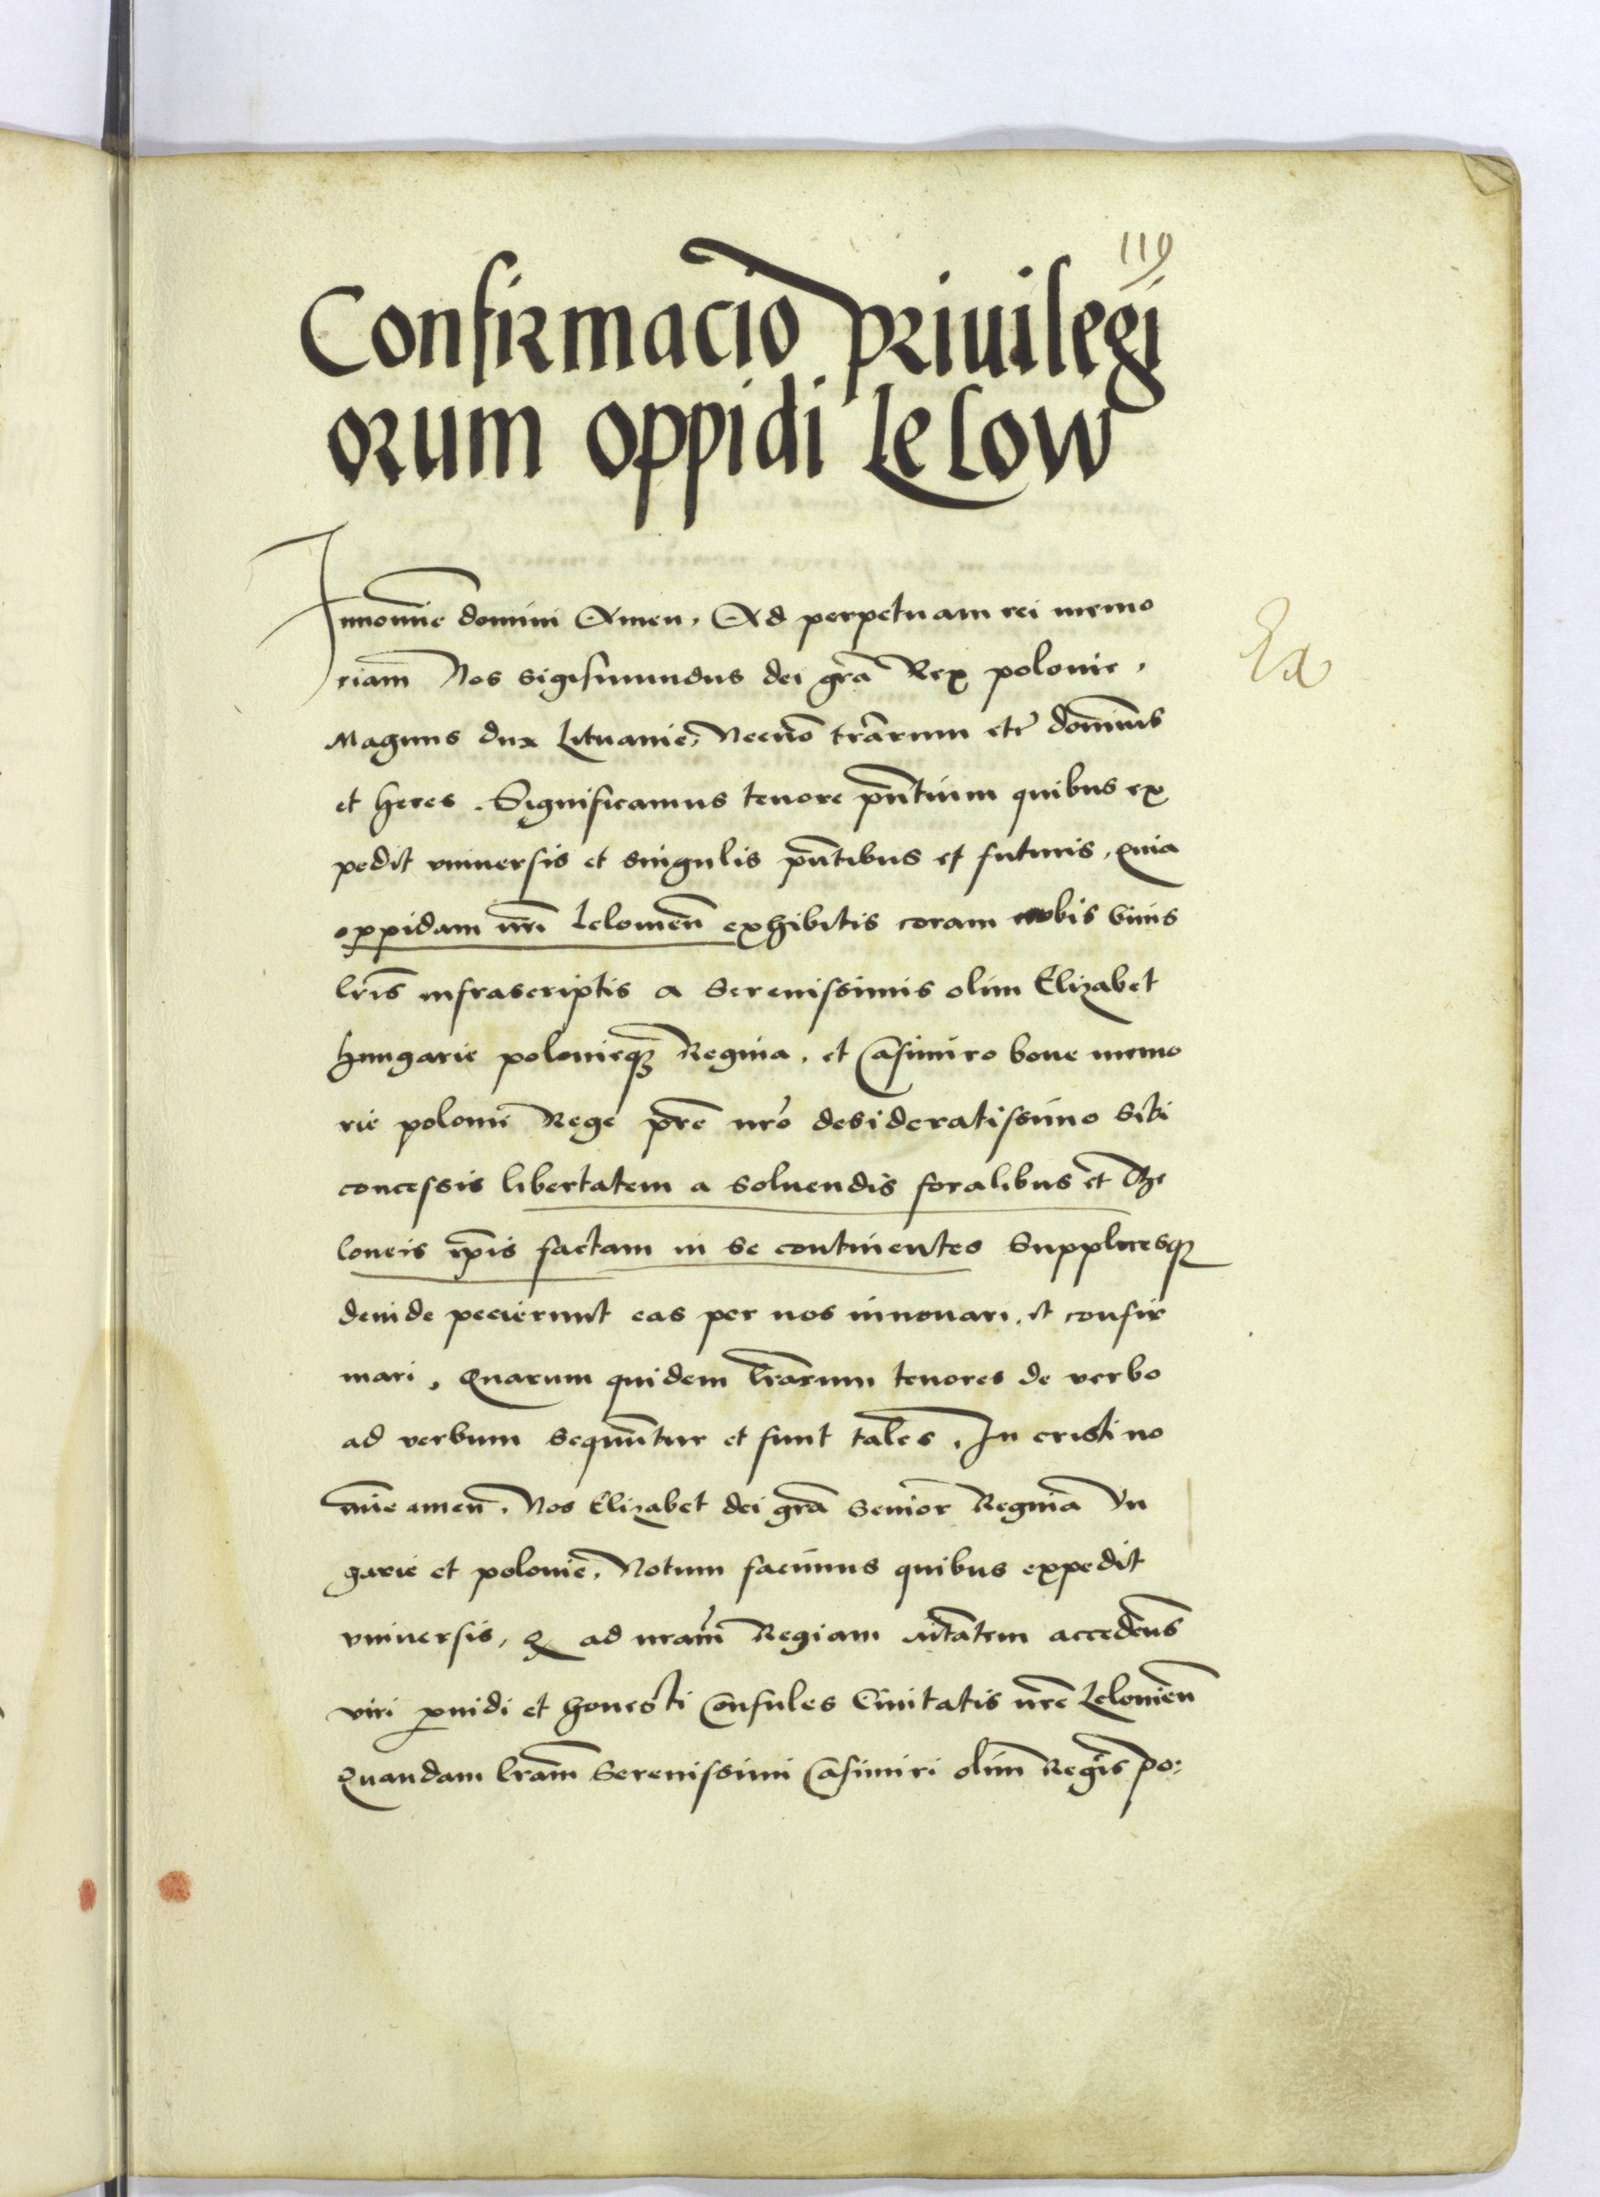 119
Confirmacio privilegi
orum oppidi Lelow
Innomie domini Amen. Ad perpetuam rei memo
riam Nos Sigismundus dei gra Rex polonie.
Magnus dux Lituanie, Necno trarum etc dominus
et heres. Significamus tenore pntium quibus ex
pedit vniuersis et singulis pntibus et futuris, quia
oppidani nri Lelouien exhibitis coram nobis binis
lris infrascriptis a Serenissimis olim Elizabet
hungarie polonieq Regina. et Casimiro bone memo
rie polonie Rege pre nro desideratissimo Sibi
concessis libertatem a soluendis foralibus et The
loneis ipis factam in se continentes Supplicesq
deinde pecierunt eas per nos innouari. et confir
mari. Quarum quidem lrarum tenores de verbo
ad verbum sequntur et sunt tales. In cristi no
mie amen. Nos Elizabet dei gra Senior Regina Vn
garie et polonie. Notum facimus quibus expedit
vniuersis, q ad nram Regiam accedens
viri puidi et honesti Consules Ciuitatis nre Lelouien
Quandam lram Serenissimi Casimiri olim Regis po: